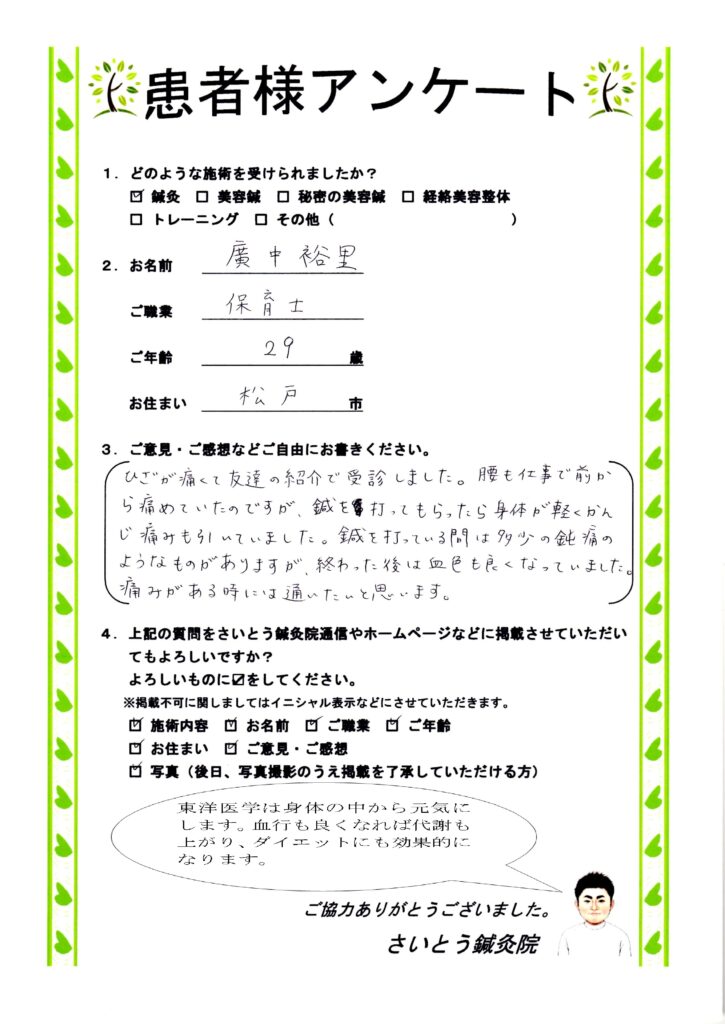 患者様アンケート
1．どのような施術を受けられましたか？
☑ 鍼灸 □ 美容鍼 □ 秘密の美容鍼 □ 経絡美容整体
□ トレーニング □ その他（ ）
2．お名前 廣中裕里
ご職業 保育士
ご年齢 29 歳
お住まい 松戸 市
3．ご意見・ご感想などご自由にお書きください。
ひざが痛くて友達の紹介で受診しました。腰も仕事で前か
ら痛めていたのですが、鍼を打ってもらったら身体が軽くかん
じ痛みも引いていました。鍼を打っている間は多少の鈍痛の
ようなものがありますが、終わった後は血色も良くなっていました。
痛みがある時には通いたいと思います。
4．上記の質問をさいとう鍼灸院通信やホームページなどに掲載させていただい
てもよろしいですか？
よろしいものに☑をしてください。
※掲載不可に関しましてはイニシャル表示などにさせていただきます。
☑ 施術内容 ☑ お名前 ☑ ご職業 ☑ ご年齢
☑ お住まい ☑ ご意見・ご感想
☑ 写真（後日、写真撮影のうえ掲載を了承していただける方）
東洋医学は身体の中から元気に
します。血行も良くなれば代謝も
上がり、ダイエットにも効果的に
なります。
ご協力ありがとうございました。
さいとう鍼灸院